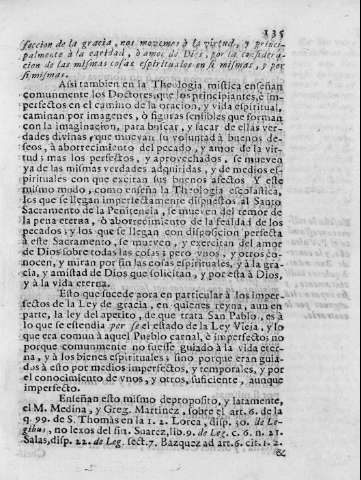 135
feccion de la gracia, nos movemos à la virtud, y princi-
palmente à la caridad, ò amor de Dios, por la considera-
cion de las mismas cosas espirituales en si mismas, y por
si mismas.
Assi tambien en la Theologia mistica enseñan
comunmente los Doctores, que los principiantes, è im-
perfectos en el camino de la oracion, y vida espiritual,
caminan por imagenes, ò figuras sensibles que forman
con la imaginacion, para buscar, y sacar de ellas ver-
dades divinas, que muevan su voluntad à buenos de-
seos, à aborrecimiento del pecado, y amor de la vir-
tud; mas los perfectos, y aprovechados, se mueven
ya de las mismas verdades adquiridas, y de medios es-
pirituales con que excitan sus buenos afectos. Y este
mismo modo, como enseña la Theologia escolastica,
los que se llegan imperfectamente dispuestos al Santo
Sacramento de la Penitencia, se mueven del temor de
la pena eterna, ò aborrecimiento de la fealdad de los
pecados; y los que se llegan con disposicion perfecta
à este Sacramento, se mueven, y exercitan del amor
de Dios sobre todas las cosas; pero vnos, y otros co-
nocen, y miran por fin las cosas espirituales, y à la gra-
cia, y amistad de Dios que solicitan, y por esta à Dios,
y à la vida eterna.
Esto que sucede aora en particular à los imper-
fectos de la Ley de gracia, en quienes reyna, aun en
parte, la ley del apetito, de que trata San Pablo, es à
lo que se estendia per se el estado de la Ley Vieja, y lo
que era comun à aquel Pueblo carnal, è imperfecto; no
porque comunmente no fuesse guiado à la vida eter-
na, y à los bienes espirituales; sino porque eran guia-
dos à esto por medios imperfectos, y temporales, y por
el conocimiento de vnos, y otros, suficiente, aunque
imperfecto.
Enseñan esto mismo deproposito, y latamente,
el M. Medina, y Greg. Martinez, sobre el art. 6. de la
q. 99. de S. Thomas en la 1. 2. Lorca, disp. 30. de Le-
gibus, no lexos del fin. Suarez, lib. 9. de Leg. c. 6. n. 21.
Salas, disp. 22. de Leg. sect. 7. Bazquez ad art. 6. cit. 1. 2.
&